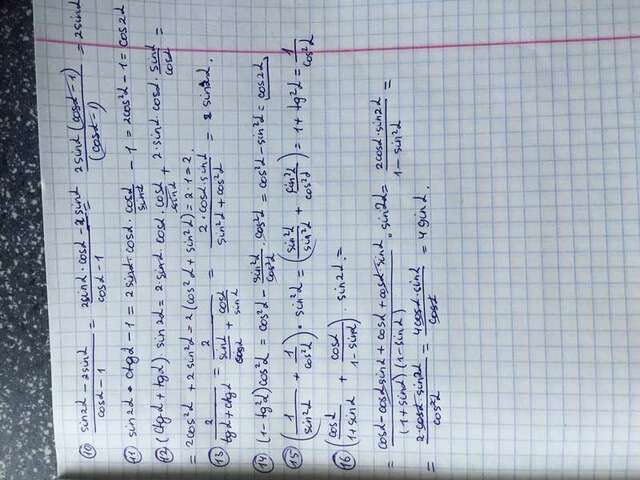 10 (sin2α − 2sinα)/(cosα − 1) = (2sinα · cosα − 2 sinα)/(cosα − 1) = 2sinα (cosα − 1)/(cosα − 1) = 2sinα
11 sin2α · ctgα − 1 = 2sinα · cosα · cosα/sinα − 1 = 2cos²α − 1 = cos2α
12 (ctgα + tgα) · sin2α = 2 · sinα · cosα · cosα/sinα + 2 · sinα · cosα · sinα/cosα =
= 2cos²α + 2sin²α = 2(cos²α + sin²α) = 2 · 1 = 2.
13 2/(tgα + ctgα) = 2/(sinα/cosα + cosα/sinα) = (2 · cosα · sinα)/(sin²α + cos²α) = sin2α.
14 (1 − tg²α)cos²α = cos²α − sin²α/cos²α · cos²α = cos²α − sin²α = cos2α
15 (1/sin²α + 1/cos²α) · sin²α = (sin²α/sin²α + sin²α/cos²α) = 1 + tg²α = 1/cos²α
16 (cosα/(1 + sinα) + cosα/(1 − sinα)) · sin2α =
= (cosα − cosα sinα + cosα + cosα sinα)/((1 + sinα)(1 − sinα)) · sin2α = (2cosα · sin2α)/(1 − sin²α) =
= (2 · cosα · sin2α)/cos²α = (4cosα · sinα)/cosα = 4sinα.